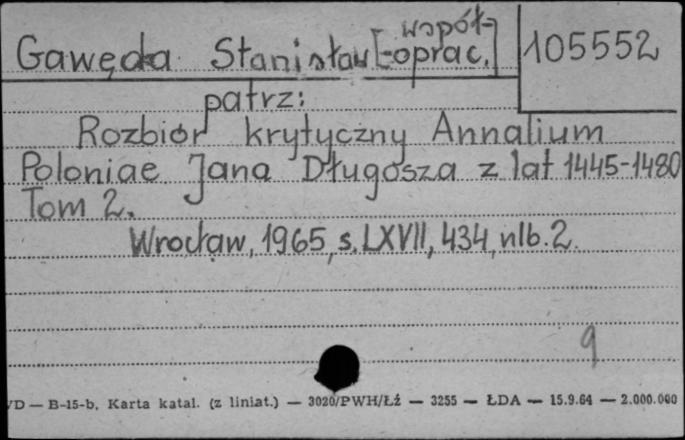 Gawęda Stanisław [współ-
oprac.] 105552
patrz:
Rozbiór krytyczny Annalium
Poloniae Jana Długosza z lat 1445-1480
Tom 2.
Wrocław, 1965, s. LXVII, 434, nlb. 2.
9
YD — B-15-b, Karta katal. (z liniat.) — 3020/PWH/Łź — 3255 — ŁDA — 15.9.64 — 2.000.000